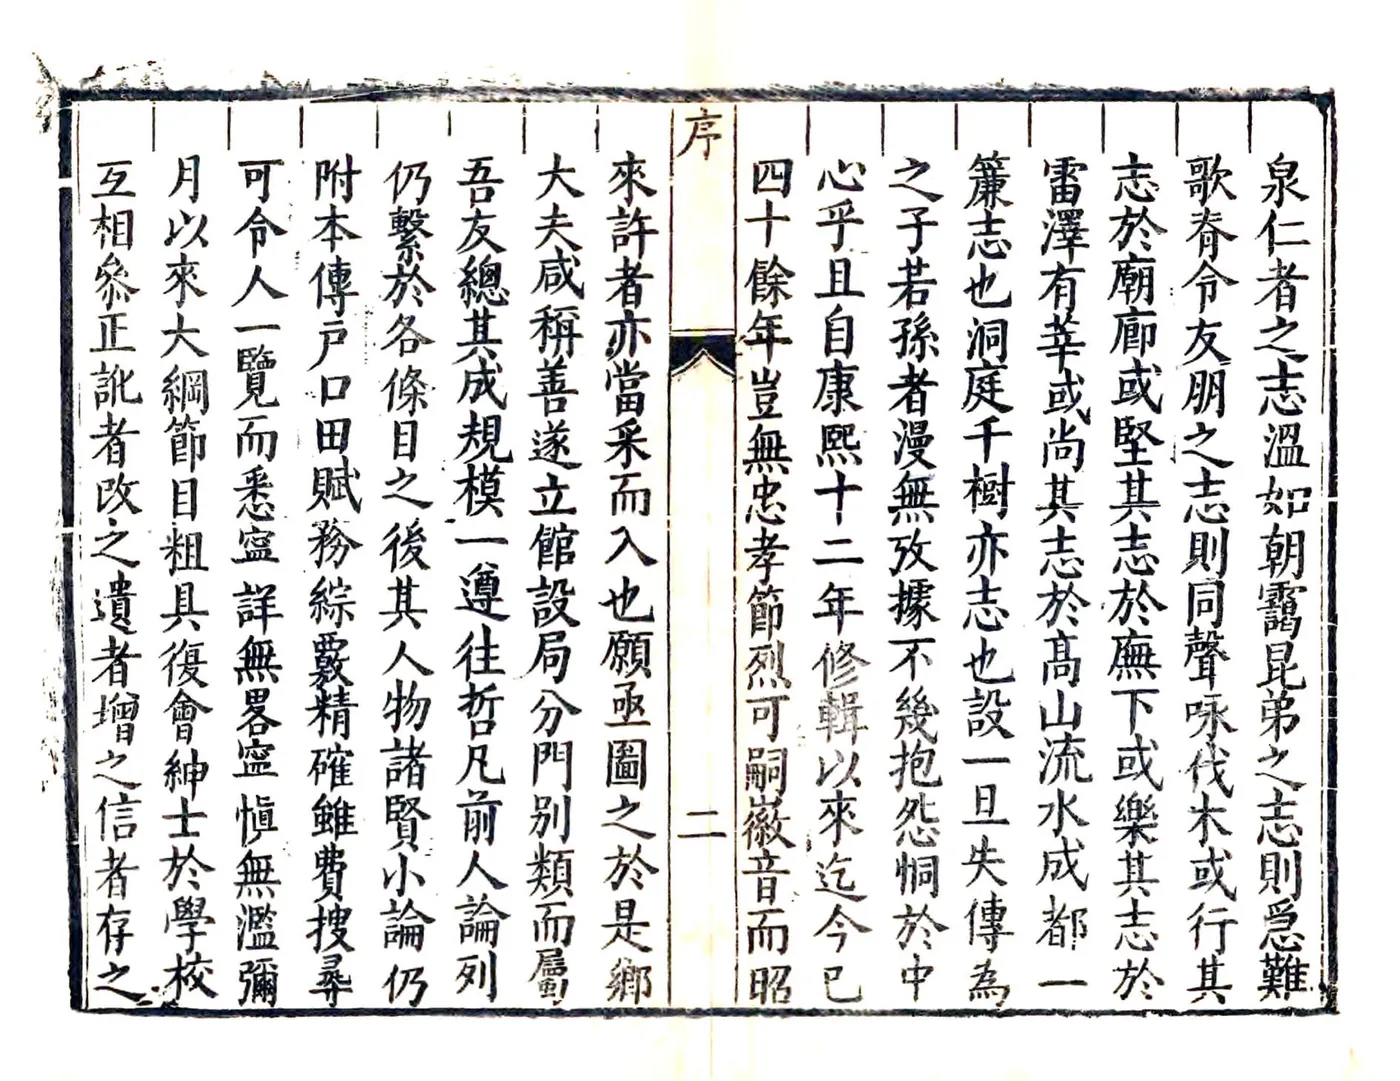 泉仁者之志溫如朝靄昆弟之志則急難
歌脊令友朋之志則同聲咏伐木或行其
志於廟廊或堅其志於廡下或樂其志於
雷澤有莘或尚其志於高山流水成都一
簾志也洞庭千樹亦志也設一旦失傳為
之子若孫者漫無攷據不幾抱怨恫於中
心乎且自康熙十二年修輯以來迄今已
四十餘年豈無忠孝節烈可嗣徽音而昭
序
二
來許者亦當采而入也願亟圖之於是鄉
大夫咸稱善遂立館設局分門別類而屬
吾友總其成規模一遵往哲凡前人論列
仍繫於各條目之後其人物諸賢小論仍
附本傳戶口田賦務綜覈精確雖費搜尋
可令人一覽而悉寧詳無畧寧慎無濫彌
月以來大綱節目粗具復會紳士於學校
互相叅正訛者改之遺者增之信者存之